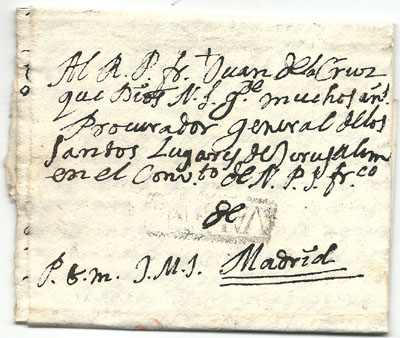 Al R. P. fr. Juan de la Cruz
que Dios N. S. g.de muchos an.s
Procurador general de los
Santos Lugares de Jerusalem
en el Conv.to de N. P. S. fr.co
de
P. t. m. J. M. J. Madrid